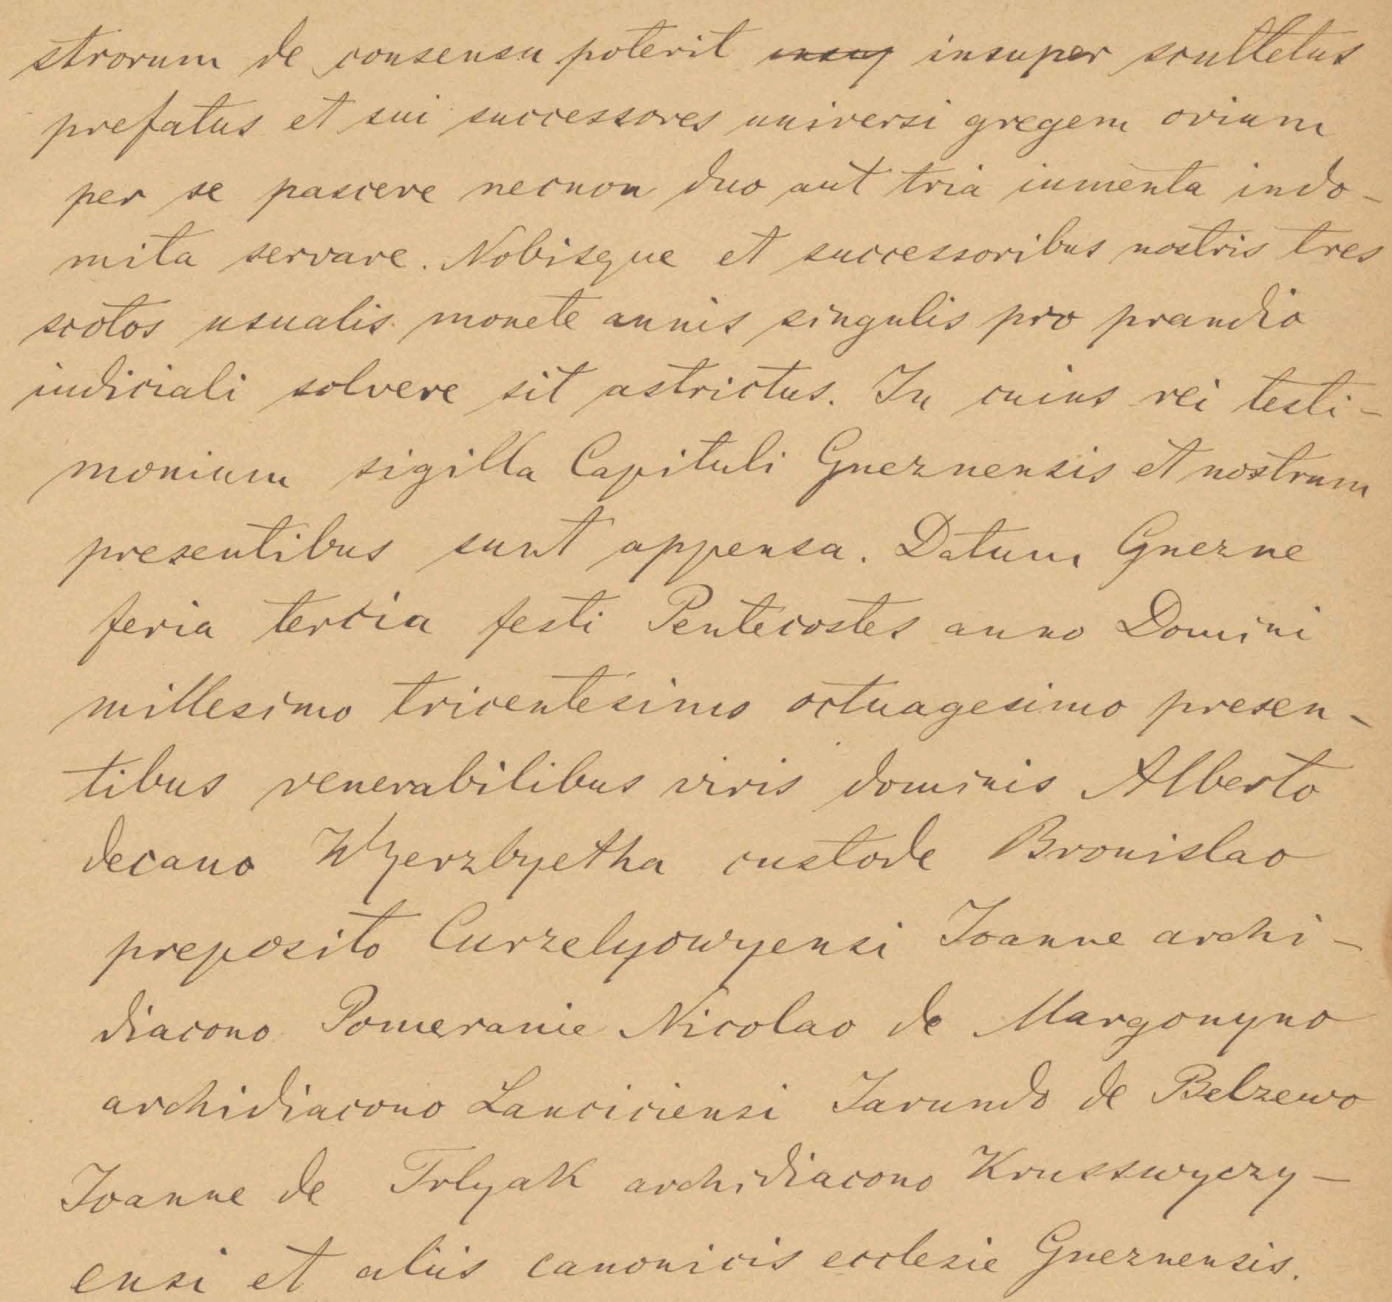 strorum de consensu poterit insup insuper scultetus
prefatus et sui successores universi gregem ovium
per se pascere necnon duo aut tria iumenta indo-
mita servare. Nobisque et successoribus nostris tres
scotos usualis monete annis singulis pro prandio
iudiciali solvere sit astrictus. In cuius rei testi-
monium sigilla Capituli Gneznensis et nostrum
presentibus sunt appensa. Datum Gnezne
feria tercia festi Pentecostes anno Domini
millesimo tricentesimo octuagesimo presen-
tibus venerabilibus viris dominis Alberto
decano Wyerzbyetha custode Bronislao
preposito Curzelyowyensi Ioanne archi-
diacono Pomeranie Nicolao de Margonyno
archidiacono Lanciciensi Iarundo de Belzewo
Ioanne de Trlyak archidiacono Krusswyczy-
ensi et aliis canonicis ecclesie Gneznensis.